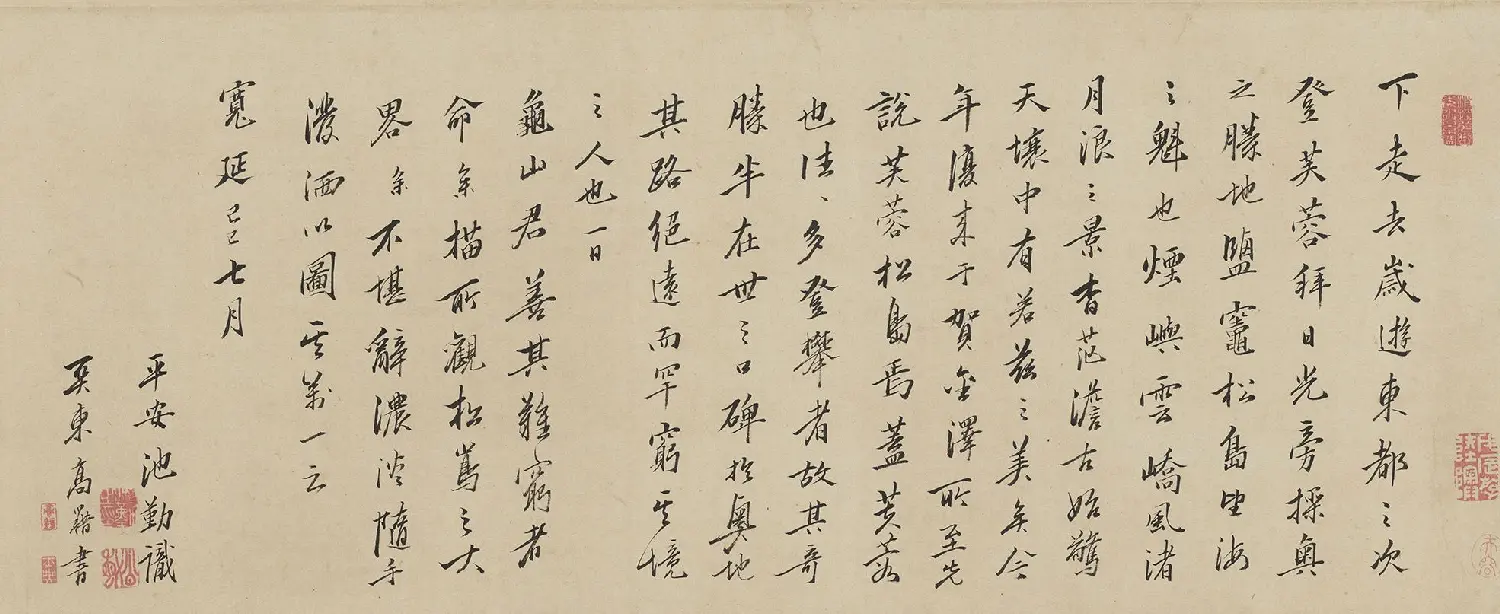 下走去歲遊東都之次
登芙蓉拜日光旁探奧
之勝地鹽竈松島坐海
之魁也煙嶼雲嶠風渚
月浪之景杳茫澹古始驚
天壤中有若茲之美矣今
年復來于賀金澤所至先
說芙蓉松島焉蓋芙蓉
也往々多登攀者故其奇
勝半在世之口碑於奧地
其路絕遠而罕窮其境
之人也一日
龜山君善其難窮者
命余描所觀松嶌之大
畧余不堪辭濃淡隨手
潑洒以圖其萬一云
寬延己巳七月
平安池勤識
東高 書